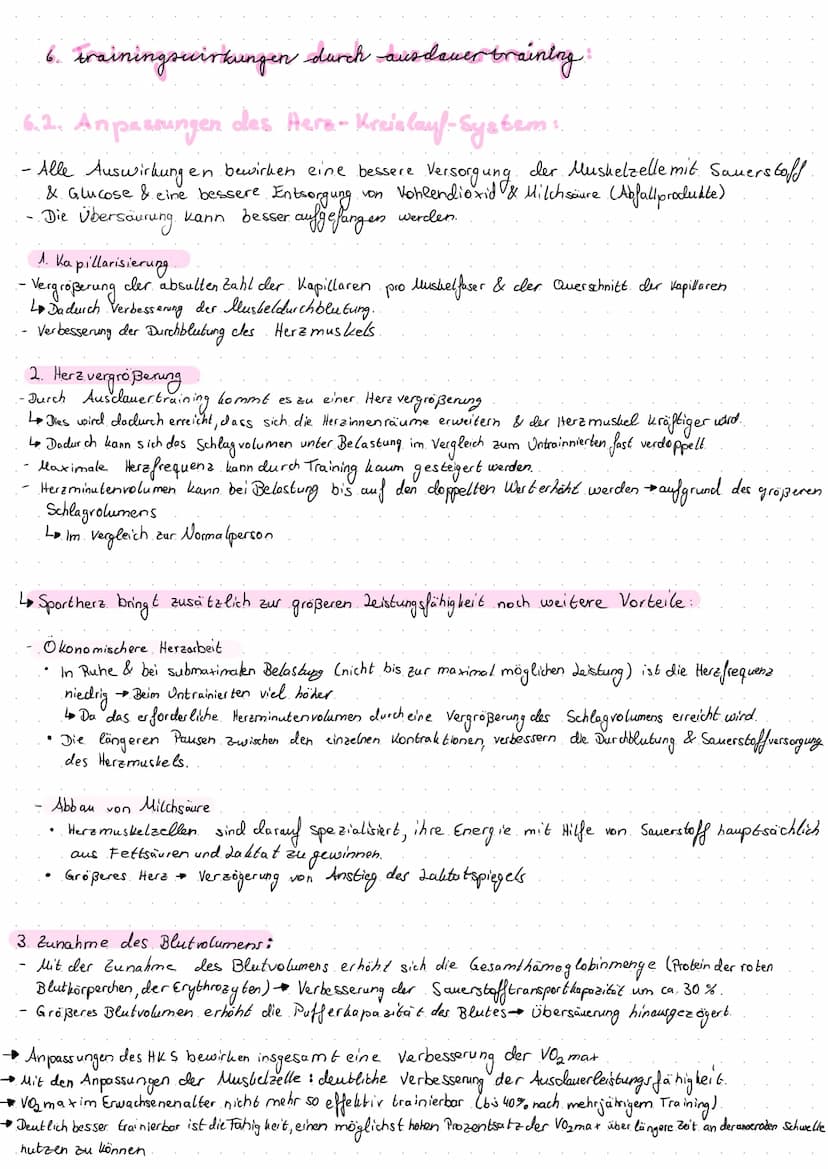 6. Trainingswirkungen durch Ausdauertraining:
6.2. Anpassungen des Herz-Kreislauf-System:
- Alle Auswirkungen bewirken eine bessere Versorgung der Muskelzelle mit Sauerstoff
& Glucose & eine bessere Entsorgung von Kohlendioxid & Milchsäure (Abfallprodukte)
- Die Übersäurung kann besser aufgefangen werden.
1. Kapillarisierung
- Vergrößerung der absulten Zahl der Kapillaren pro Muskelfaser & der Querschnitt der Kapillaren
↳ Dadurch Verbesserung der Muskeldurchblutung.
- Verbesserung der Durchblutung des Herzmuskels.
2. Herzvergrößerung
- Durch Ausdauertraining kommt es zu einer Herzvergrößerung
↳ Dies wird dadurch erreicht, dass sich die Herzinnenräume erweitern & der Herzmuskel kräftiger wird.
↳ Dadurch kann sich das Schlagvolumen unter Belastung im Vergleich zum Untrainnierten fast verdoppelt
- Maximale Herzfrequenz kann durch Training kaum gesteigert werden.
- Herzminutenvolumen kann bei Belastung bis auf den doppelten Wert erhöht werden → aufgrund des größeren
Schlagvolumens
↳ Im Vergleich zur Normalperson
↳ Sportherz bringt zusätzlich zur größeren Leistungsfähigkeit noch weitere Vorteile:
- Ökonomischere Herzarbeit
• In Ruhe & bei submaximalen Belastung (nicht bis zur maximal möglichen Leistung) ist die Herzfrequenz
niedrig → Beim Untrainierten viel höher
↳ Da das erforderliche Herzminutenvolumen durch eine Vergrößerung des Schlagvolumens erreicht wird.
• Die längeren Pausen zwischen den einzelnen Kontraktionen, verbessern die Durchblutung & Sauerstoffversorgung
des Herzmuskels.
- Abbau von Milchsäure
• Herzmuskelzellen sind darauf spezialisiert, ihre Energie mit Hilfe von Sauerstoff hauptsächlich
aus Fettsäuren und Laktat zu gewinnen.
• Größeres Herz → Verzögerung von Anstieg des Laktatspiegels
3. Zunahme des Blutvolumens:
- Mit der Zunahme des Blutvolumens erhöht sich die Gesamthämoglobinmenge (Protein der roten
Blutkörperchen, der Erythrozyten) → Verbesserung der Sauerstofftransportkapazität um ca. 30 %.
- Größeres Blutvolumen erhöht die Pufferkapazität des Blutes → Übersäuerung hinausgezögert.
→ Anpassungen des HKS bewirken insgesamt eine Verbesserung der VO₂max
→ Mit den Anpassungen der Muskelzelle: deutliche Verbesserung der Ausdauerleistungsfähigkeit.
→ VO₂max im Erwachsenenalter nicht mehr so effektiv trainierbar (bis 40% nach mehrjährigem Training).
→ Deutlich besser trainierbar ist die Fähigkeit, einen möglichst hohen Prozentsatz der VO₂max über längere Zeit an der anaeroben Schwelle
nutzen zu können.